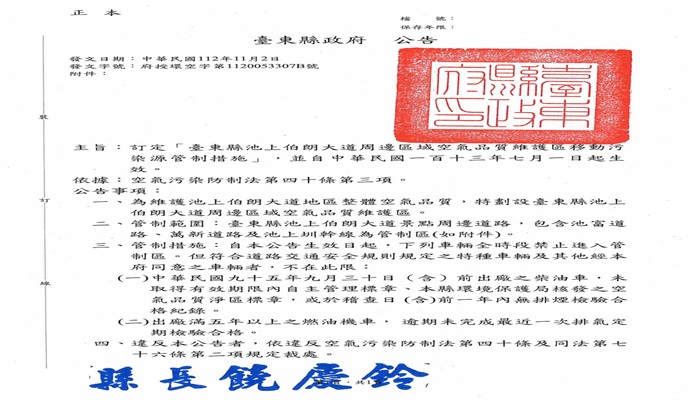 正本
檔號：
保存年限：
臺東縣政府 公告
發文日期：中華民國112年11月2日
發文字號：府授環空字第1120053307B號
附件：
臺東縣政府印
主旨：訂定「臺東縣池上伯朗大道周邊區域空氣品質維護區移動污
染源管制措施」，並自中華民國一百十三年七月一日起生
效。
依據：空氣污染防制法第四十條第三項。
公告事項：
一、為維護池上伯朗大道地區整體空氣品質，特劃設臺東縣池上
伯朗大道周邊區域空氣品質維護區。
二、管制範圍：臺東縣池上伯朗大道景點周邊道路，包含池富道
路、萬新道路及池上圳幹線為管制區(如附件)。
三、管制措施：自本公告生效日起，下列車輛全時段禁止進入管
制區。但符合道路交通安全規則規定之特種車輛及其他經本
府同意之車輛者，不在此限：
(一)中華民國九十五年九月三十日（含）前出廠之柴油車，未
取得有效期限內自主管理標章、本縣環境保護局核發之空
氣品質淨區標章，或於稽查日(含)前一年內無排煙檢驗合
格紀錄。
(二)出廠滿五年以上之燃油機車，逾期未完成最近一次排氣定
期檢驗合格。
四、違反本公告者，依違反空氣污染防制法第四十條及同法第七
十六條第二項規定裁處。
裝
訂
線
縣長饒慶鈴